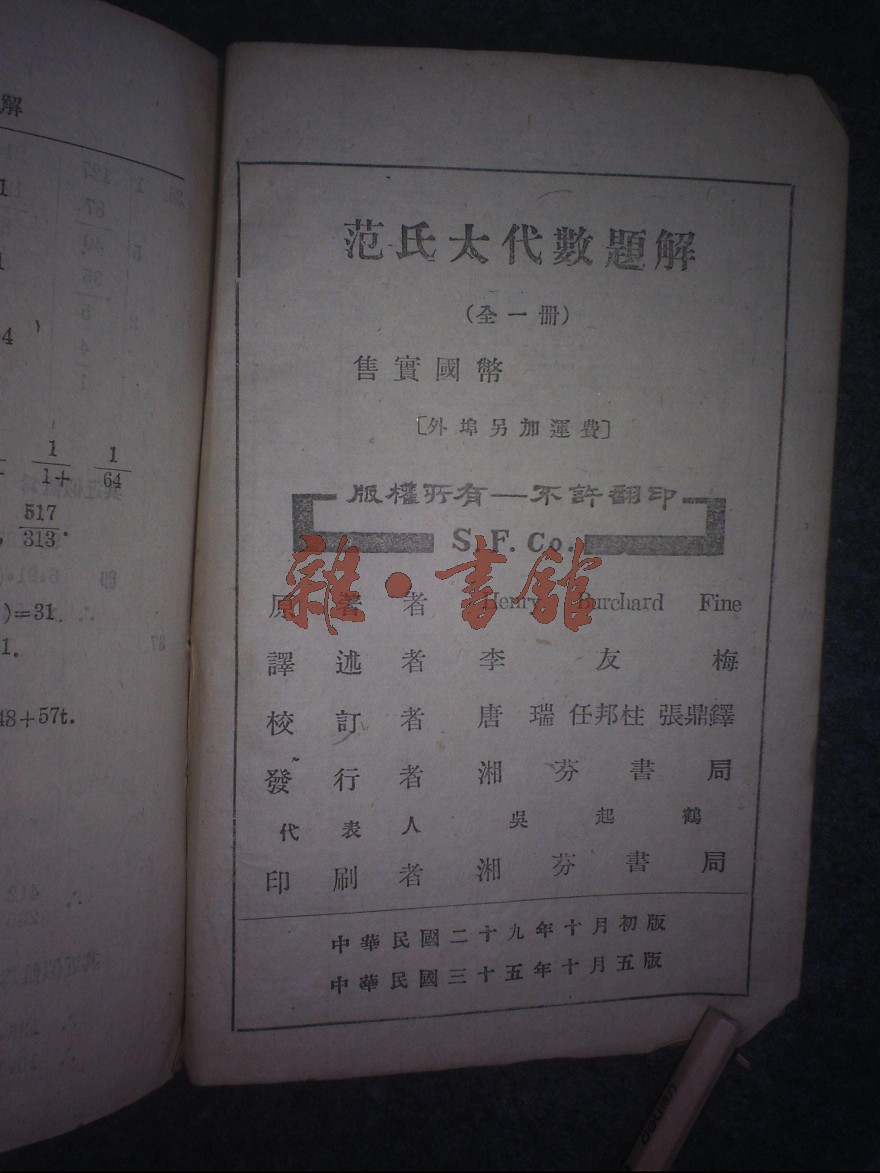 解
1
1
4
1/1+ 1/64
517/313.
)=31.
1.
48+57t.
范氏大代數題解
(全一册)
售實國幣
[外埠另加運費]
版權所有—不許翻印
S. F. Co.
雜·書館
原著者 Henry Burchard Fine
譯述者 李友梅
校訂者 唐瑞 任邦柱 張鼎鐸
發行者 湘芬書局
代表人 吳起鶴
印刷者 湘芬書局
中華民國二十九年十月初版
中華民國三十五年十月五版